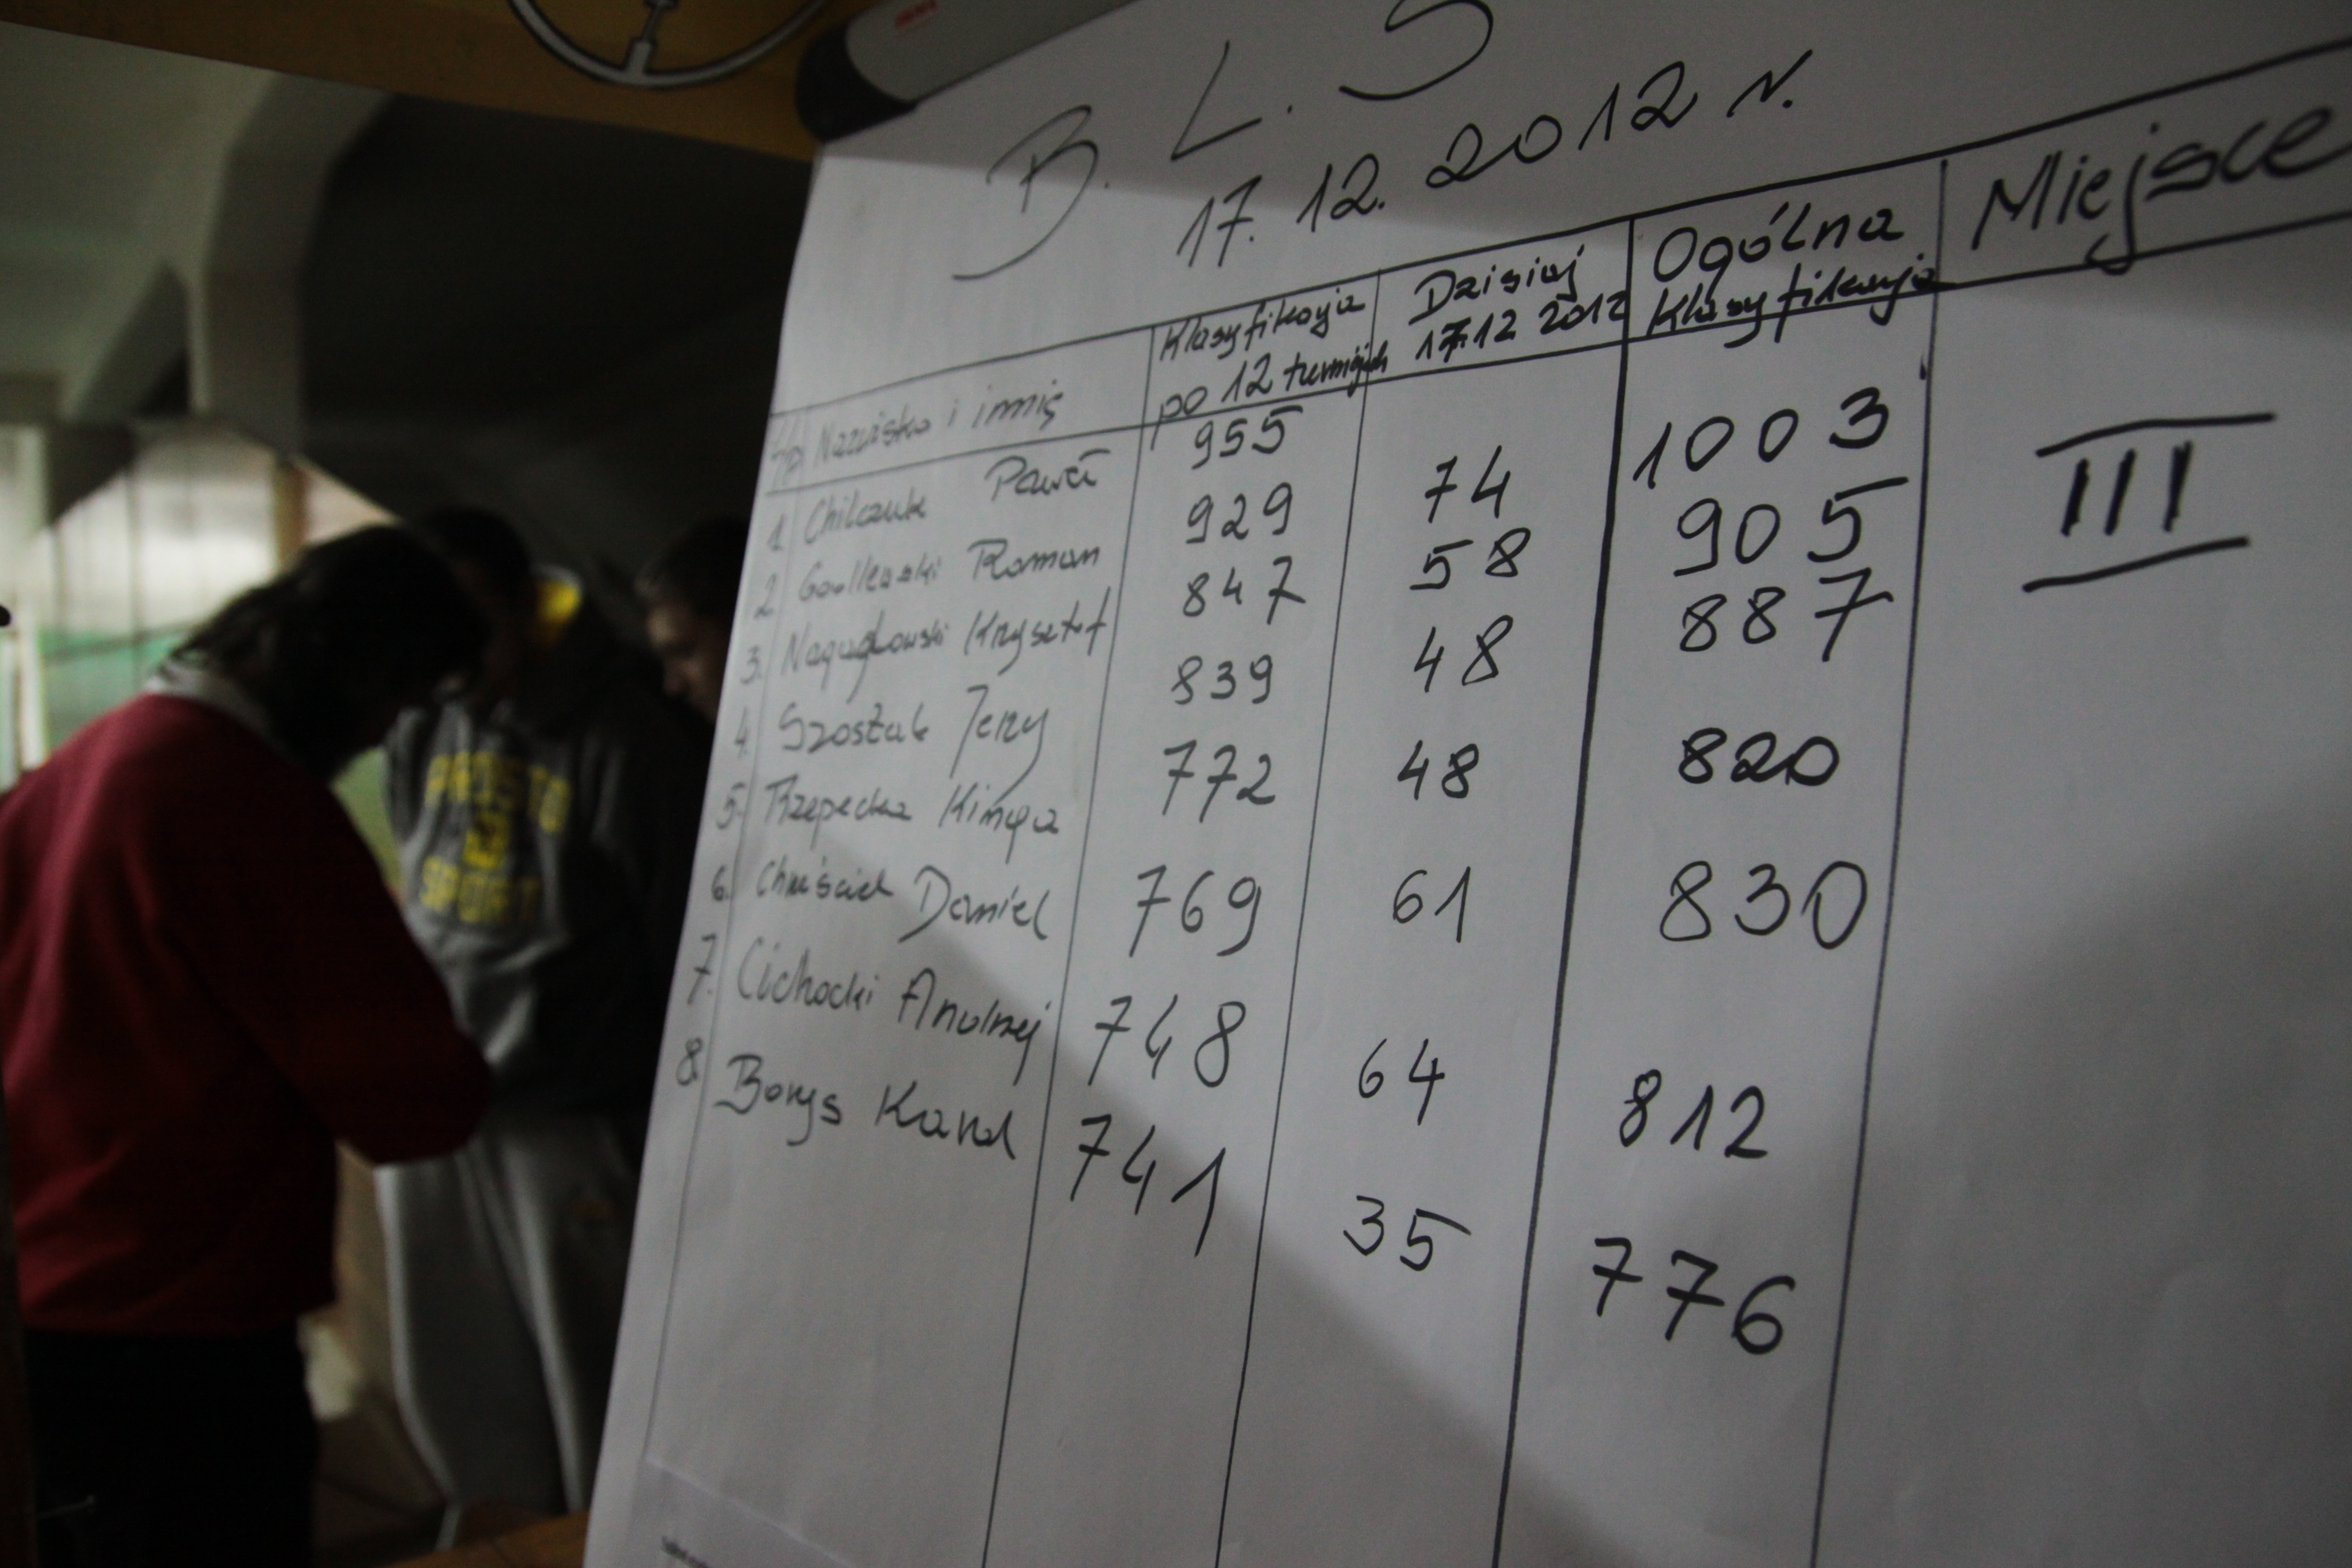 B. L. S
17. 12. 2012 r.
Nazwisko i imię Klasyfikacja po 12 turniejach Dzisiaj 17.12 2012 Ogólna Klasyfikacja Miejsce
1. Chilczuk Paweł 955
2. Godlewski Roman 929 74 1003 III
3. Krzysztof 847 58 905
4. Szostak Jerzy 839 48 887
5. Rzepecka Kinga 772 48 820
6. Chruściel Daniel 769 61 830
7. Cichocki Andrzej 748 64 812
8. Borys Karol 741 35 776
PROSTO
SPORT